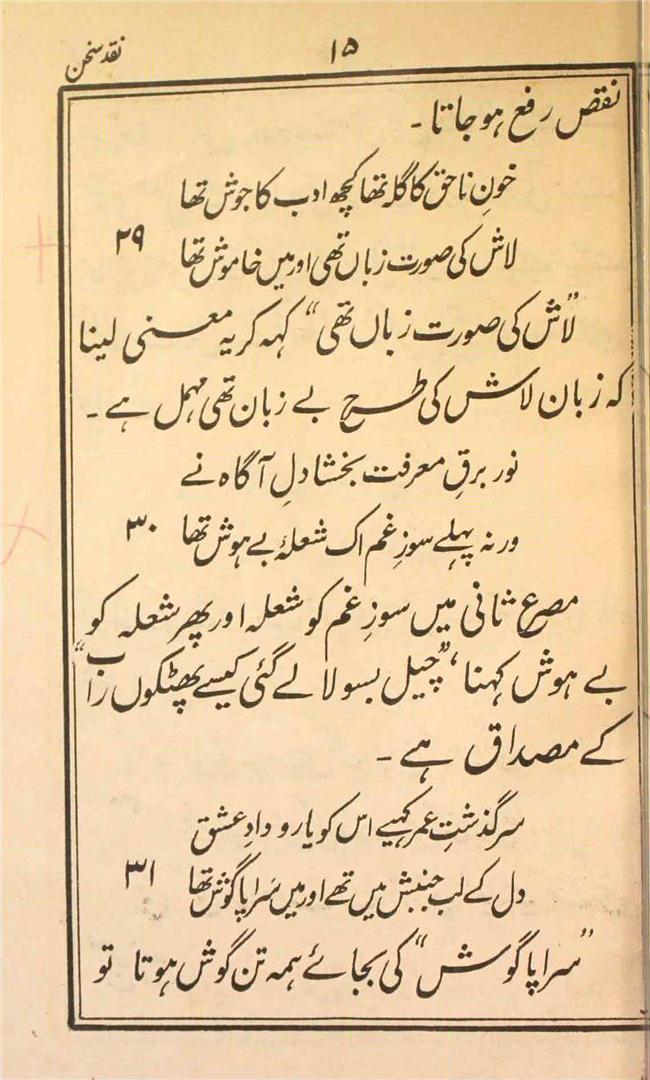 نقد سخن
۱۵
نقص رفع ہو جاتا ۔
خونِ ناحق کا گلہ تھا کچھ ادب کا جوش تھا
لاش کی صورت زباں تھی اور میں خاموش تھا ۲۹
”لاش کی صورت زباں تھی“ کہہ کر یہ معنی لینا
کہ زبان لاش کی طرح بے زبان تھی مہمل ہے ۔
نور برقِ معرفت بخشا دلِ آگاہ نے
ورنہ پہلے سوزِ غم اک شعلۂ بے ہوش تھا ۳۰
مصرع ثانی میں سوزِ غم کو شعلہ اور پھر شعلہ کو
بے ہوش کہنا، ”چیل بسولا لے گئی کیسے پھٹکوں راب“
کے مصداق ہے ۔
سرگذشتِ عمر کہیے اس کو یا رودادِ عشق
دل کے لب جنبش میں تھے اور میں سراپا گوش تھا ۳۱
”سراپا گوش“ کی بجائے ہمہ تن گوش ہوتا تو